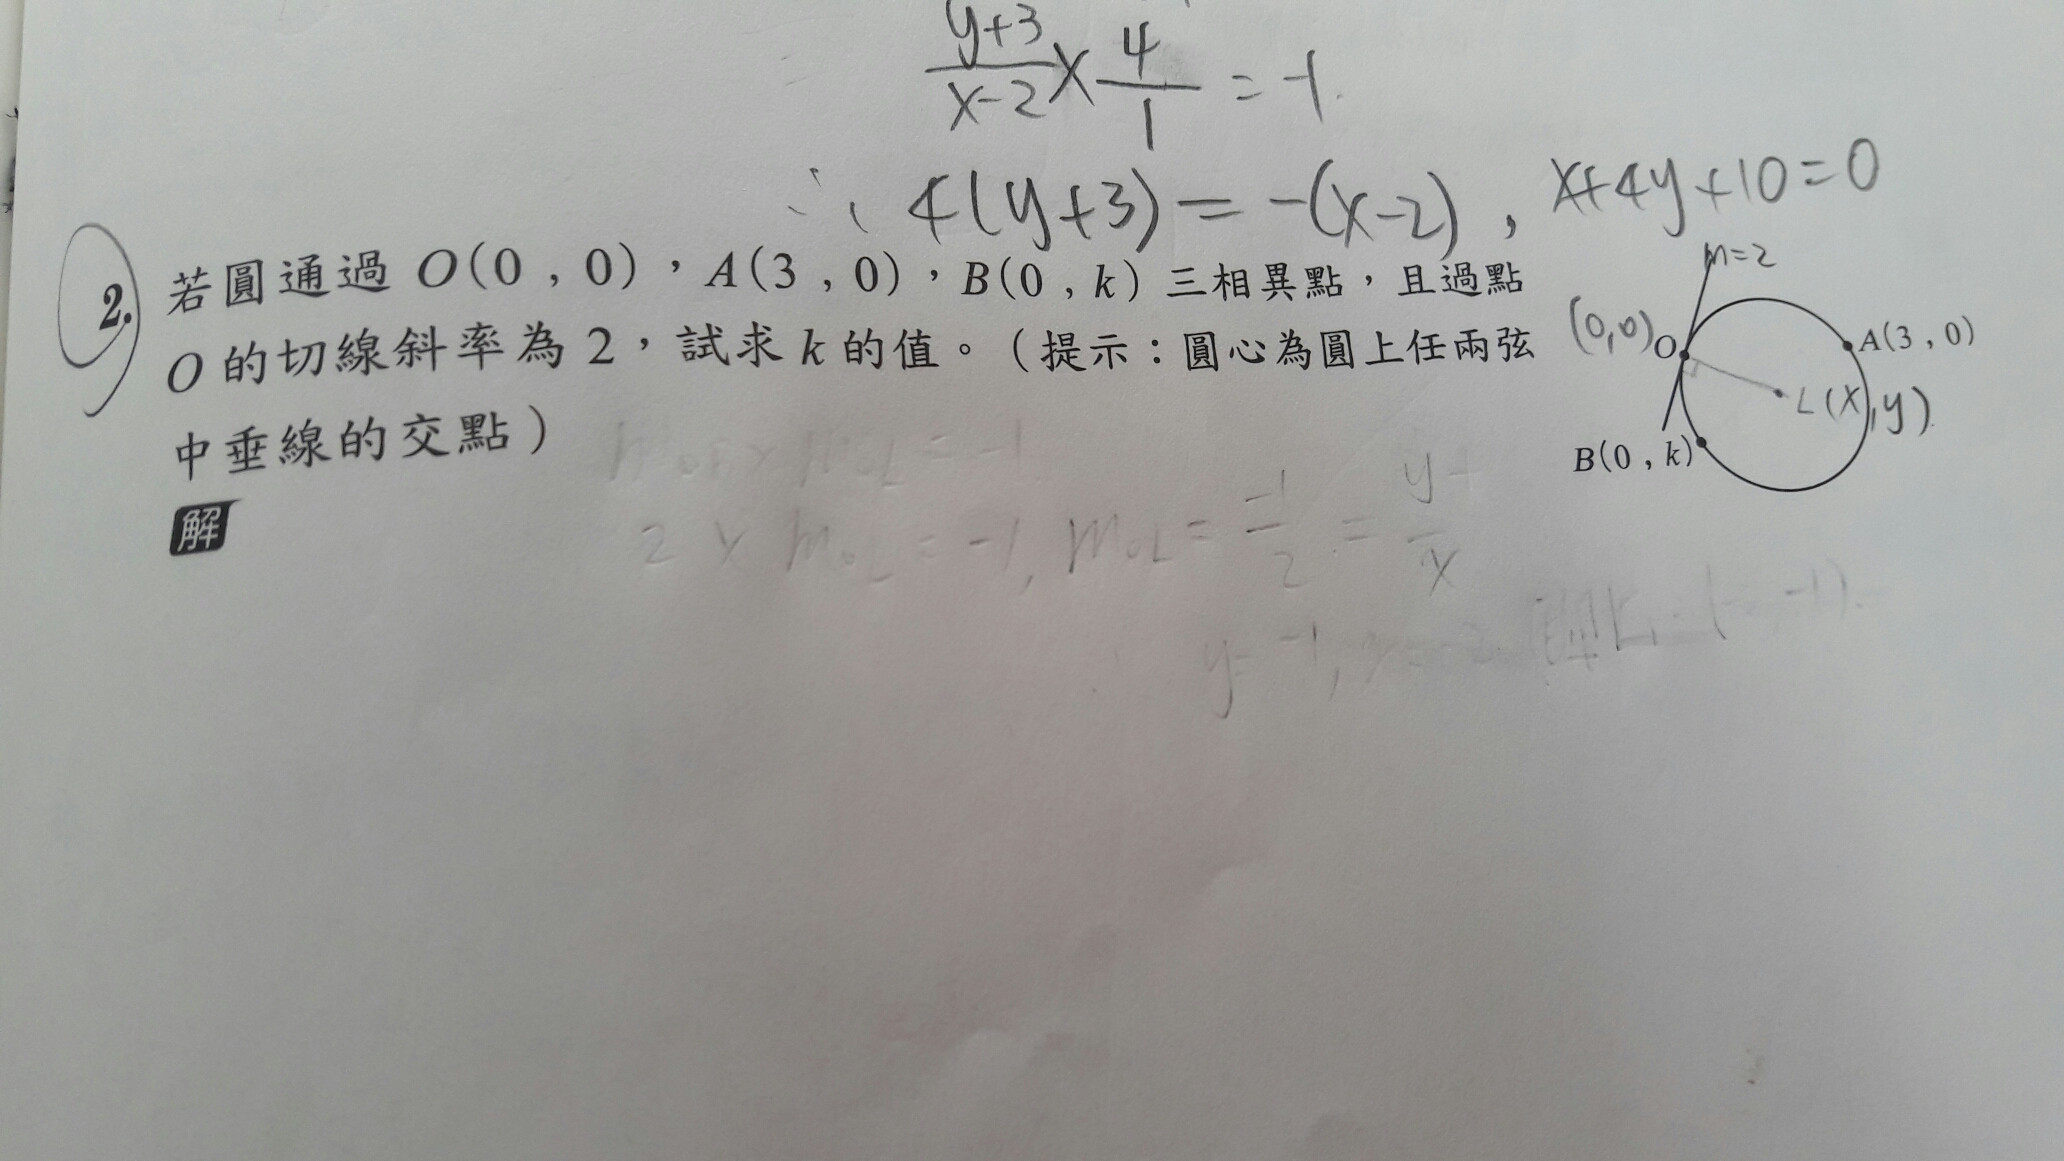 y+3/x-2 × 4/1 = -1
∴ 4(y+3) = -(x-2), x+4y+10=0
2. 若圓通過 O(0, 0),A(3, 0),B(0, k) 三相異點,且過點
O 的切線斜率為 2,試求 k 的值。(提示:圓心為圓上任兩弦
中垂線的交點)
m=2
(0,0) O
A(3, 0)
L(x,y)
B(0, k)
解
2 × mOL = -1, mOL = -1/2 = y/x